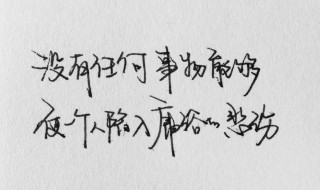 没有任何事物能够
使一个人陷入庸俗的悲伤